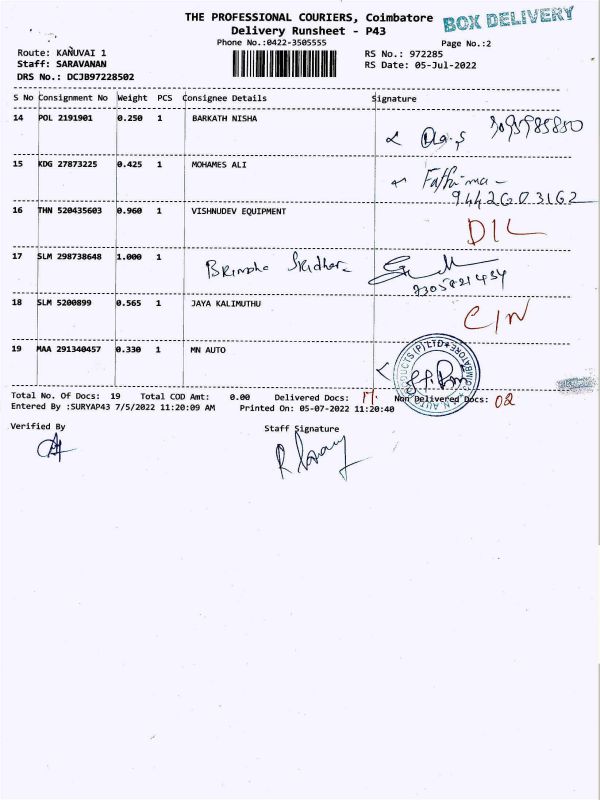 THE PROFESSIONAL COURIERS, Coimbatore
BOX DELIVERY
Delivery Runsheet - P43
Phone No.:0422-3505555
Page No.:2
Route: KANUVAI 1
RS No.: 972285
Staff: SARAVANAN
RS Date: 05-Jul-2022
DRS No.: DCJB97228502
S No Consignment No Weight PCS Consignee Details Signature
14 POL 2191901 0.250 1 BARKATH NISHA
15 KDG 27873225 0.425 1 MOHAMES ALI
Fathima
9442603162
16 THN 520435603 0.960 1 VISHNUDEV EQUIPMENT
DIL
17 SLM 298738648 1.000 1
18 SLM 5200899 0.565 1 JAYA KALIMUTHU
C/N
19 MAA 291340457 0.330 1 MN AUTO
Total No. Of Docs: 19 Total COD Amt: 0.00 Delivered Docs: 17. Non Delivered Docs: 02
Entered By :SURYAP43 7/5/2022 11:20:09 AM Printed On: 05-07-2022 11:20:40
Verified By
Staff Signature